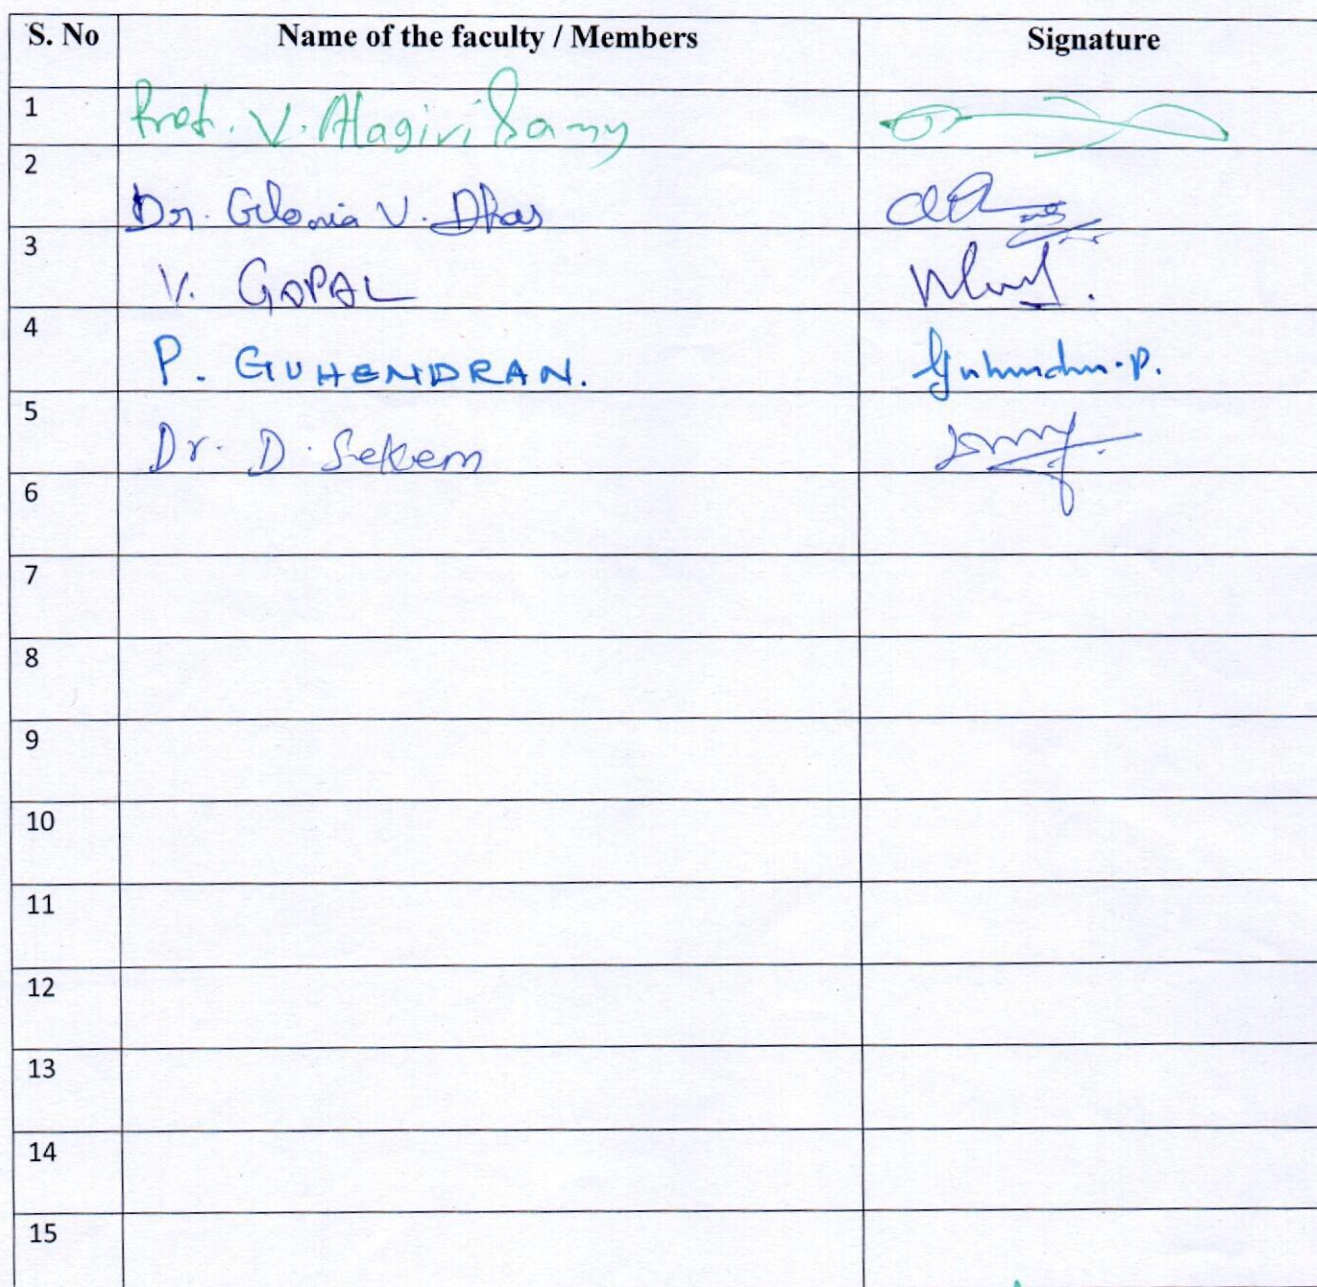 S. No Name of the faculty / Members Signature
1 Prof. V. Alagiri Samy
2 Dr. Gloria V. Dhas
3 V. GOPAL
4 P. GUHENDRAN. Guhendran.P.
5 Dr. D. Sekem
6
7
8
9
10
11
12
13
14
15